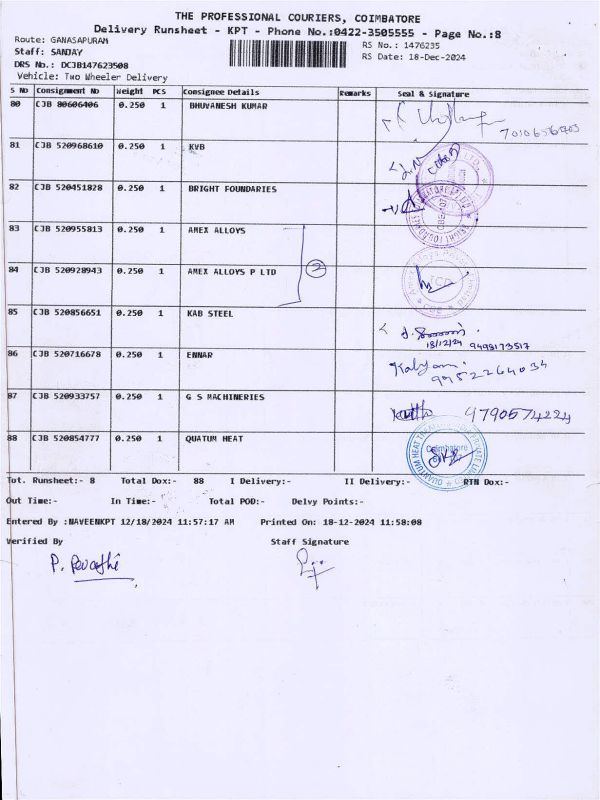 THE PROFESSIONAL COURIERS, COIMBATORE
Delivery Runsheet - KPT - Phone No.:0422-3505555 - Page No.:8
Route: GANASAPURAM
RS No.: 1476235
Staff: SANJAY
RS Date: 18-Dec-2024
DRS No.: DCJB147623508
Vehicle: Two Wheeler Delivery
S No Consignment No Weight PCS Consignee Details Remarks Seal & Signature
80 CJB 80606406 0.250 1 BHUVANESH KUMAR
81 CJB 520968610 0.250 1 KVB
82 CJB 520451828 0.250 1 BRIGHT FOUNDARIES
83 CJB 520955813 0.250 1 AMEX ALLOYS
84 CJB 520928943 0.250 1 AMEX ALLOYS P LTD 2
85 CJB 520856651 0.250 1 KAB STEEL
18/12/24 9498173517
86 CJB 520716678 0.250 1 ENNAR
9952264034
87 CJB 520933757 0.250 1 G S MACHINERIES 4790574224
88 CJB 520854777 0.250 1 QUATUM HEAT Coimbatore
Tot. Runsheet:- 8 Total Dox:- 88 I Delivery:- II Delivery:- RTN Dox:-
Out Time:- In Time:- Total POD:- Delvy Points:-
Entered By :NAVEENKPT 12/18/2024 11:57:17 AM Printed On: 18-12-2024 11:58:08
Verified By Staff Signature